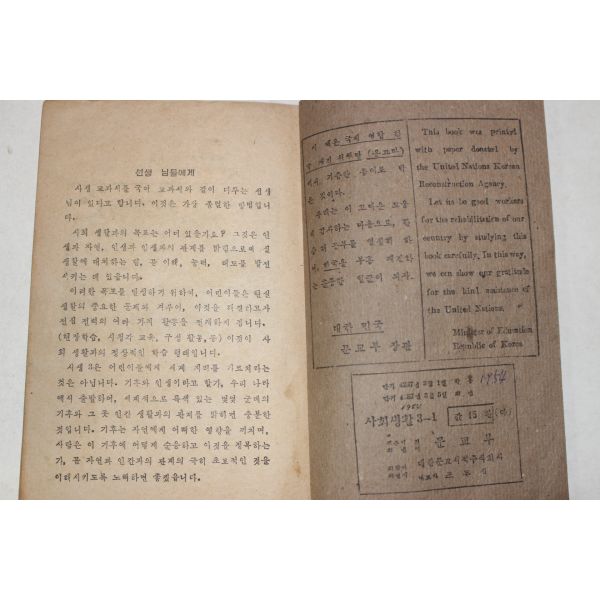 선생 님들에게
사생 교과서를 국어 교과서와 같이 다루는 선생
님이 있다고 합니다. 이것은 가장 졸렬한 방법입니
다.
사회 생활과의 목표는 어디 있을까요? 그것은 인
생과 자연, 인생과 인생과의 관계를 밝힘으로써 실
생활에 대처하는 힘, 곧 이해, 능력, 태도를 발전
시키는 데 있습니다.
이러한 목표를 달성하기 위하여, 어린이들은 현실
생활의 중요한 문제와 겨루어, 이것을 해결하고자
전심 전력의 여러 가지 활동을 전개하게 됩니다.
(현장학습, 시청각 교육, 구성 활동, 등) 이것이 사
회 생활과의 정상적인 학습 형태입니다.
사생 3은 어린이들에게 세계 지리를 가르치자는
것은 아닙니다. 기후와 인생이라고 할가, 우리 나라
에서 출발하여, 세계적으로 특색 있는 몇몇 군데의
기후와 그 곳 인간 생활과의 관계를 밝히면 충분한
것입니다. 기후는 자연에게 어떠한 영향을 끼치며,
사람은 이 기후에 어떻게 순응하고 이것을 정복하는
가, 곧 자연과 인간과의 관계의 극히 초보적인 것을
이해시키도록 노력하면 좋겠습니다.
이 책은 국제 연합 한
국 재건 위원단
에서 기증한 종이로 박
은 것이다.
우리는 이 고마운 도움
을 감사하는 마음으로,
한국을 부흥 재건하
는 훌륭한 일군이 되자.
대한 민국
문교부 장관
This book was printed
with paper donated by
the United Nations Korean
Reconstruction Agency.
Let us be good workers
for the rehabilitation of our
country by studying this
book carefully. In this way,
we can show our gratitude
for the kind assistance of
the United Nations.
Minister of Education
Republic of Korea
1954
사회생활 3-1
값 15 환
문교부
대한문교서적주식회사